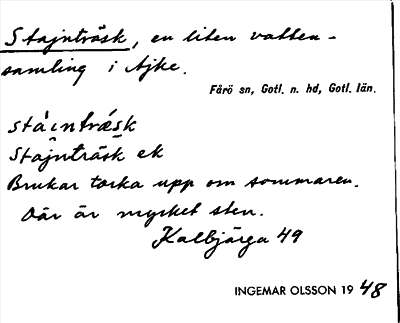 Stajnträsk, en liten vatten-
samling i Ajke.
Fårö sn, Gotl. n. hd, Gotl. län.
stáintræ̀sk
Stajnträsk ek
Brukar torka upp om sommaren.
Där är mycket sten.
Kalbjärga 49
INGEMAR OLSSON 19 48